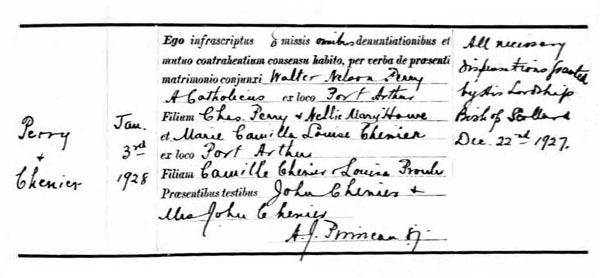 Perry
+
Chenier
Jan.
3rd
1928
Ego infrascriptus omissis omnibus denuntiationibus et
mutuo contrahentium consensu habito, per verba de præsenti
matrimonio conjunxi Walter Nelson Perry
A Catholicus ex loco Port Arthur
Filium Chas. Perry & Nellie Mary Howe
et Marie Camille Louise Chenier
ex loco Port Arthur
Filiam Camille Chenier & Louisa Proulx
Præsentibus testibus John Chenier &
Mrs John Chenier
A. J. Primeau sj.
All necessary
dispensations granted
by His Lordship
Bishop Scollard
Dec. 22nd 1927.